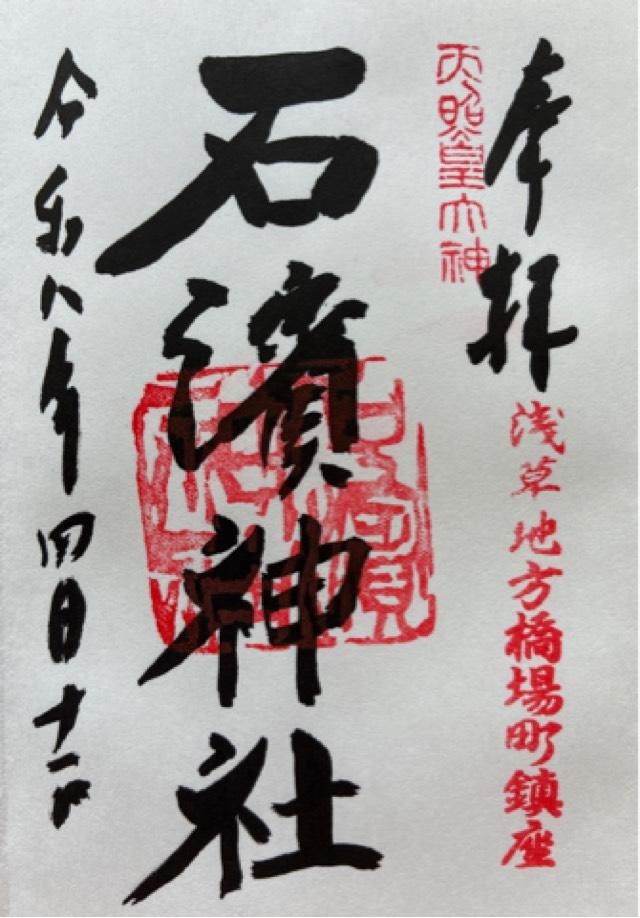 奉拝
浅草地方橋場町鎮座
天照皇大神
石濱神社
令和八年四月十一日